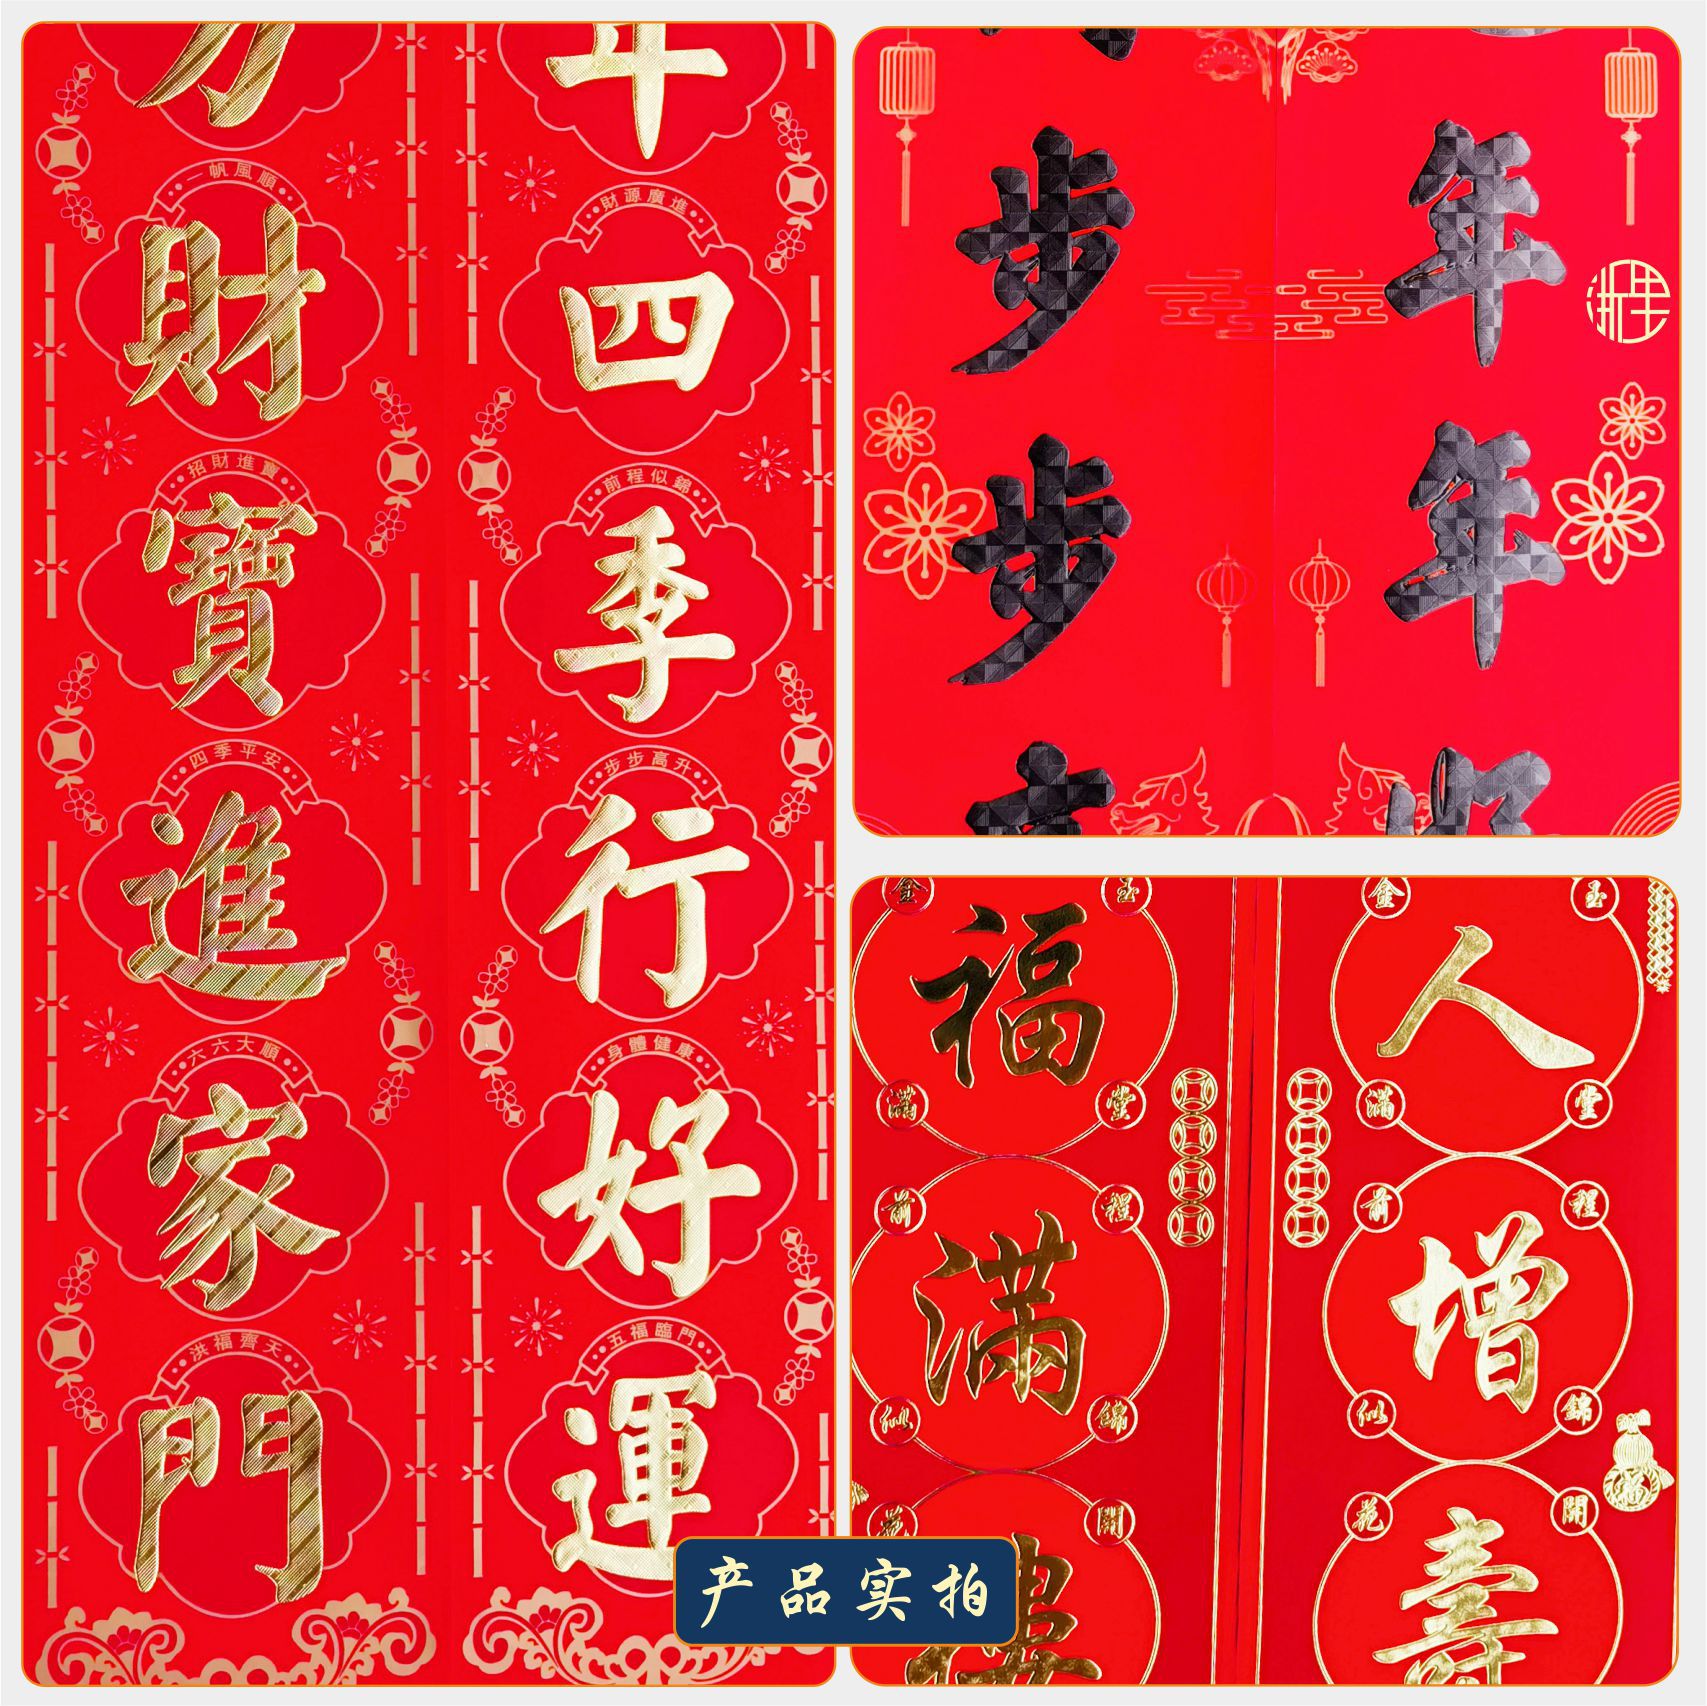 方財寶進家門
年四季行好運
一帆風順
招財進寶
四季平安
六六大順
洪福齊天
財源廣進
前程似錦
步步高升
身體健康
五福臨門
步步高
年年好
福滿樓
人增壽
金玉滿堂
前程似錦
花開
金玉滿堂
前程似錦
花開
福
产品实拍